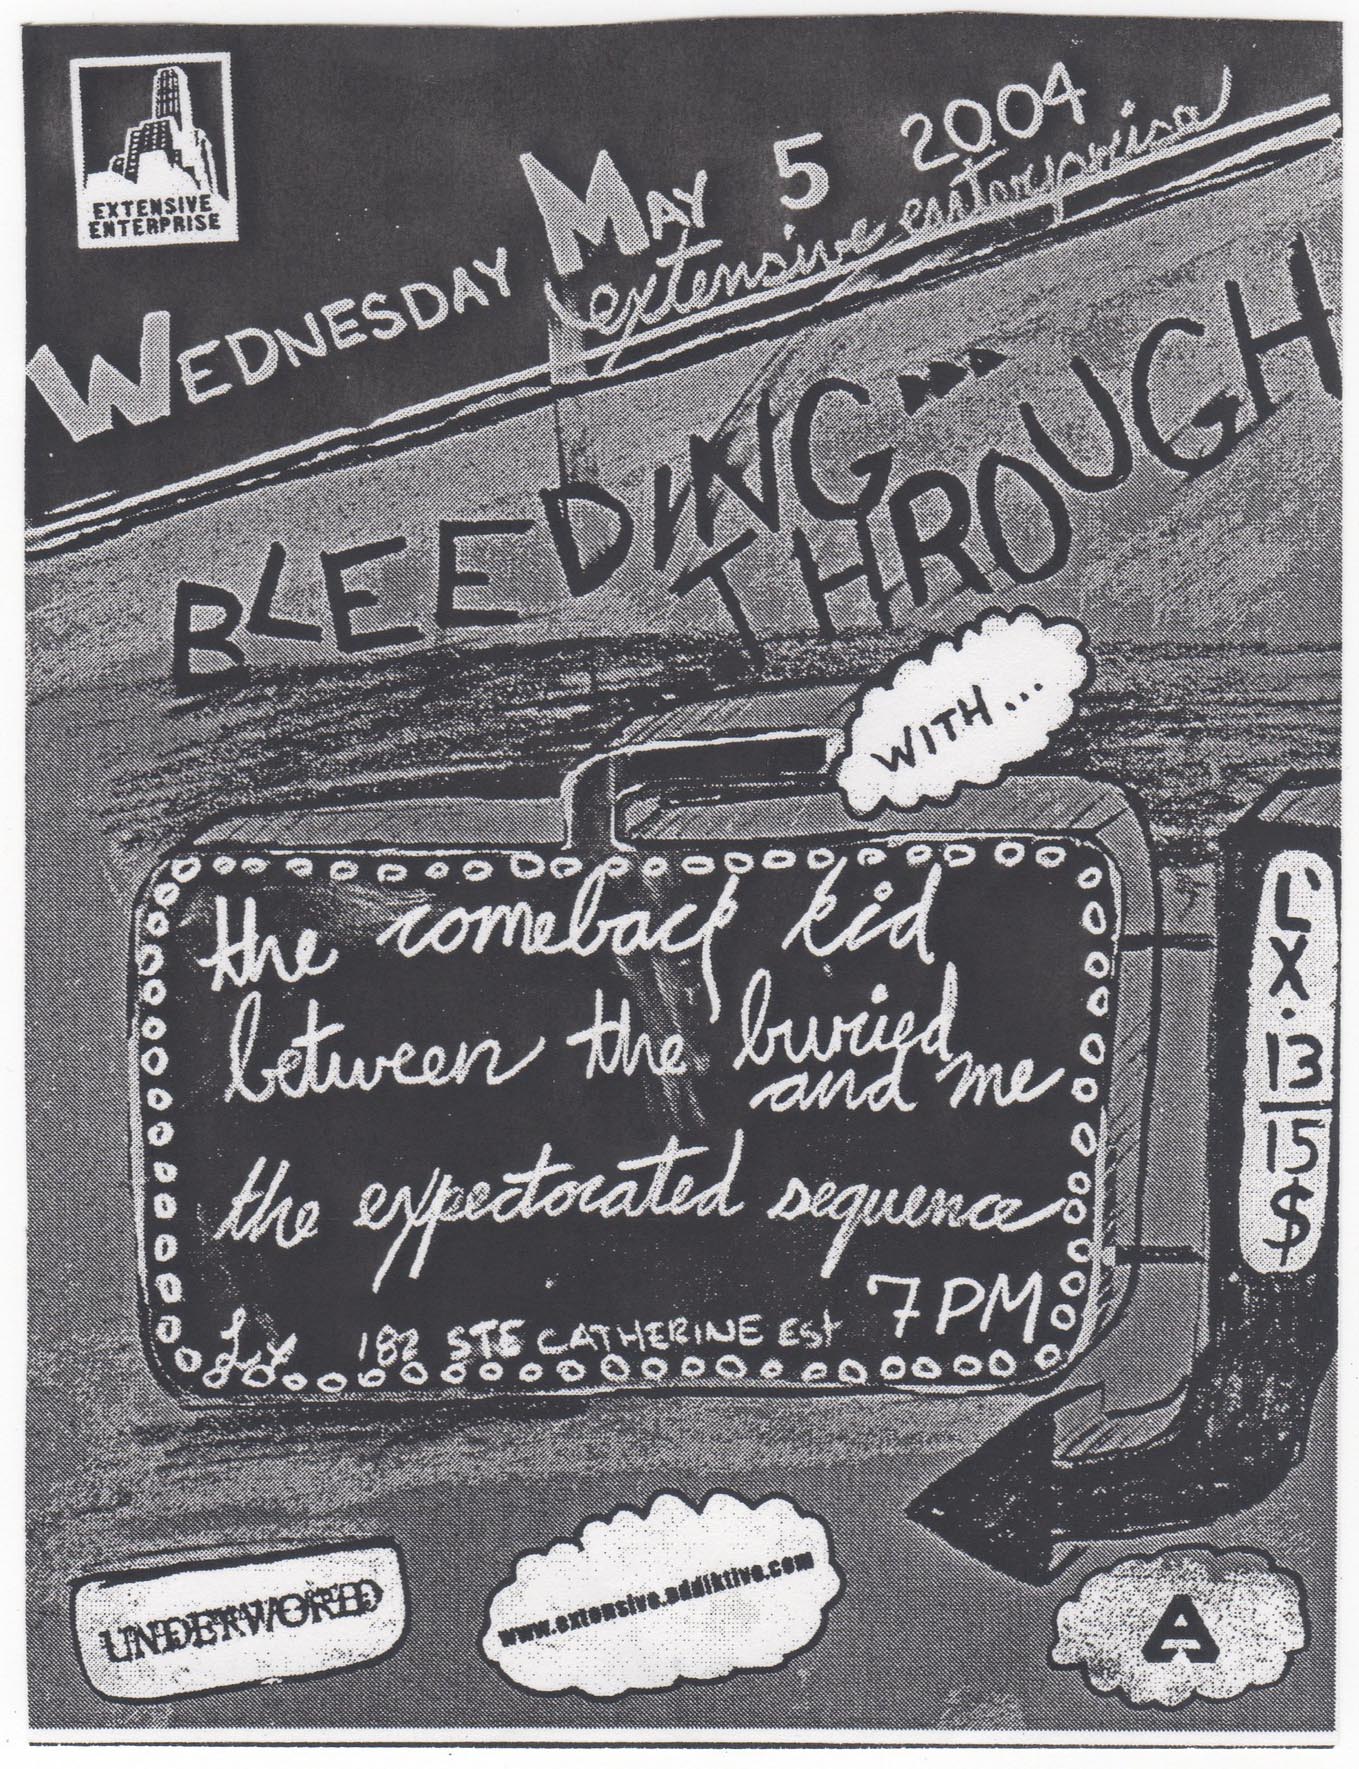 EXTENSIVE
ENTERPRISE
WEDNESDAY MAY 5 2004
extensive enterprise
BLEEDING
THROUGH
WITH...
the comeback kid
between the buried
and me
the expectorated sequence
7PM
LX 182 STE CATHERINE Est
L'
X
.
13
15
$
UNDERWORLD
www.extensive.addiktive.com
A